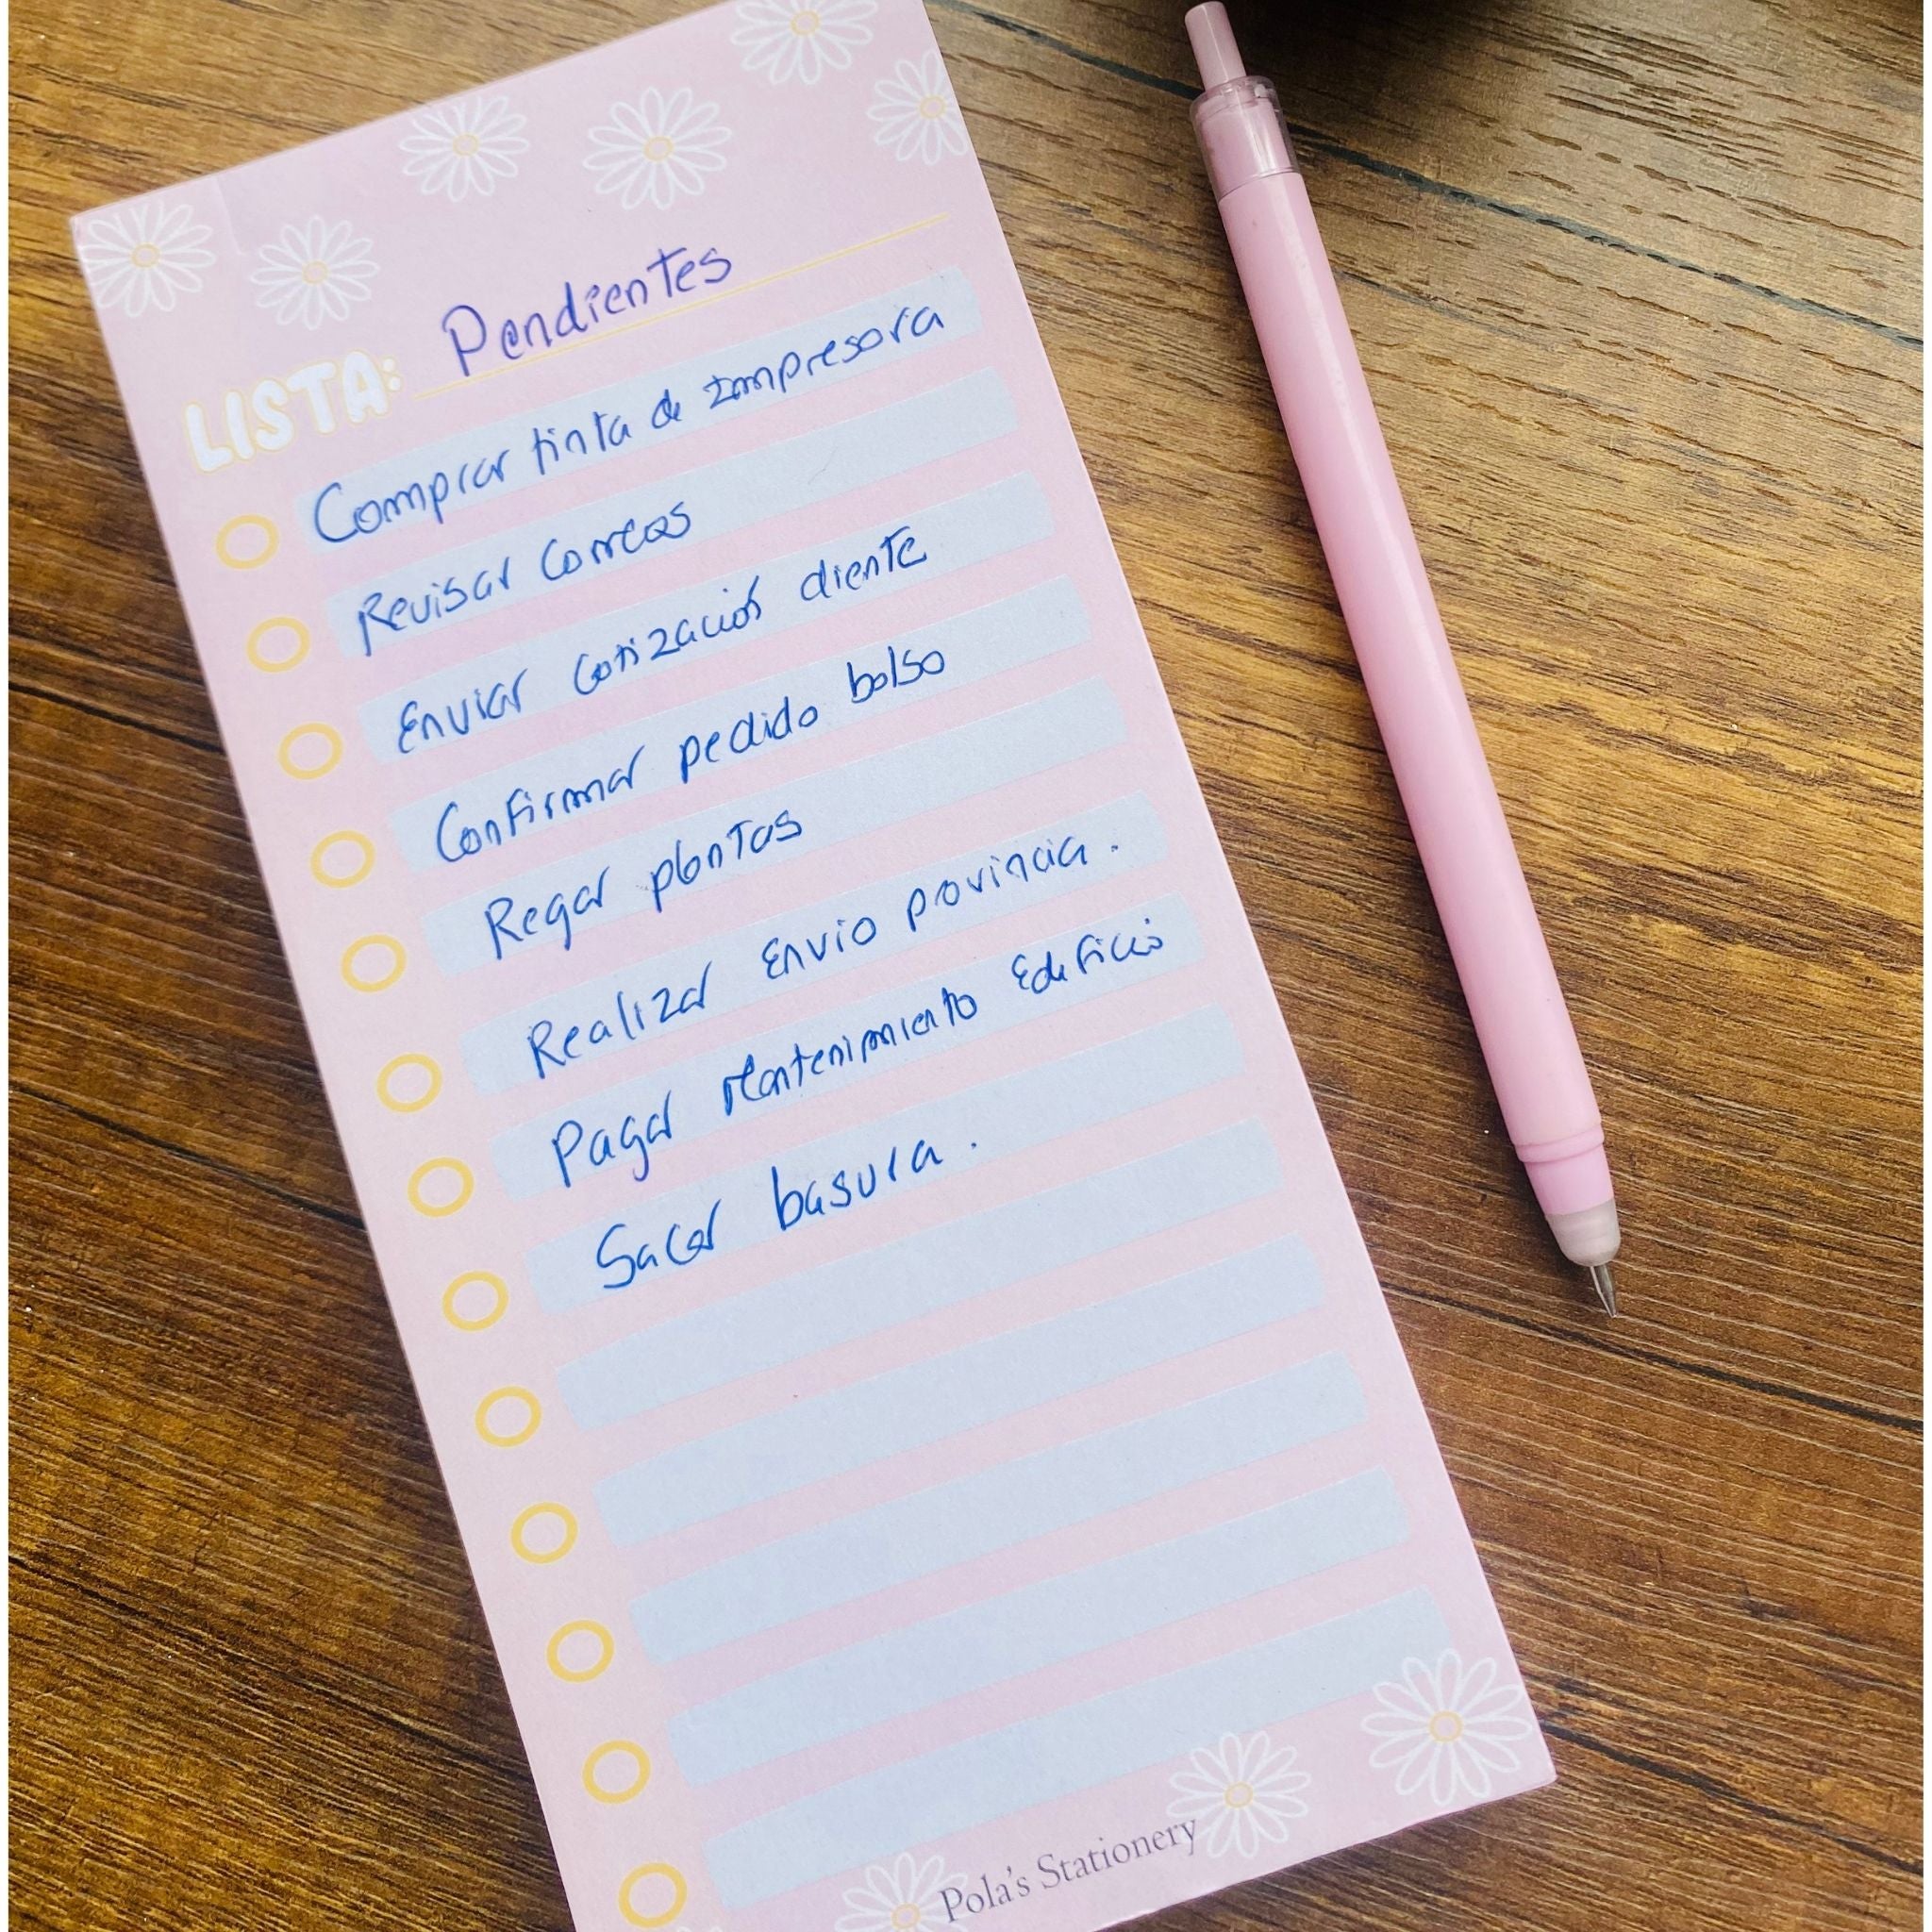 LISTA: Pendientes
Comprar tinta de Impresora
Revisar Correos
Enviar Cotización cliente
Confirmar pedido bolso
Regar plantas
Realizar Envio provincia.
Pagar Mantenimiento Edificio
Sacar basura.
Pola's Stationery